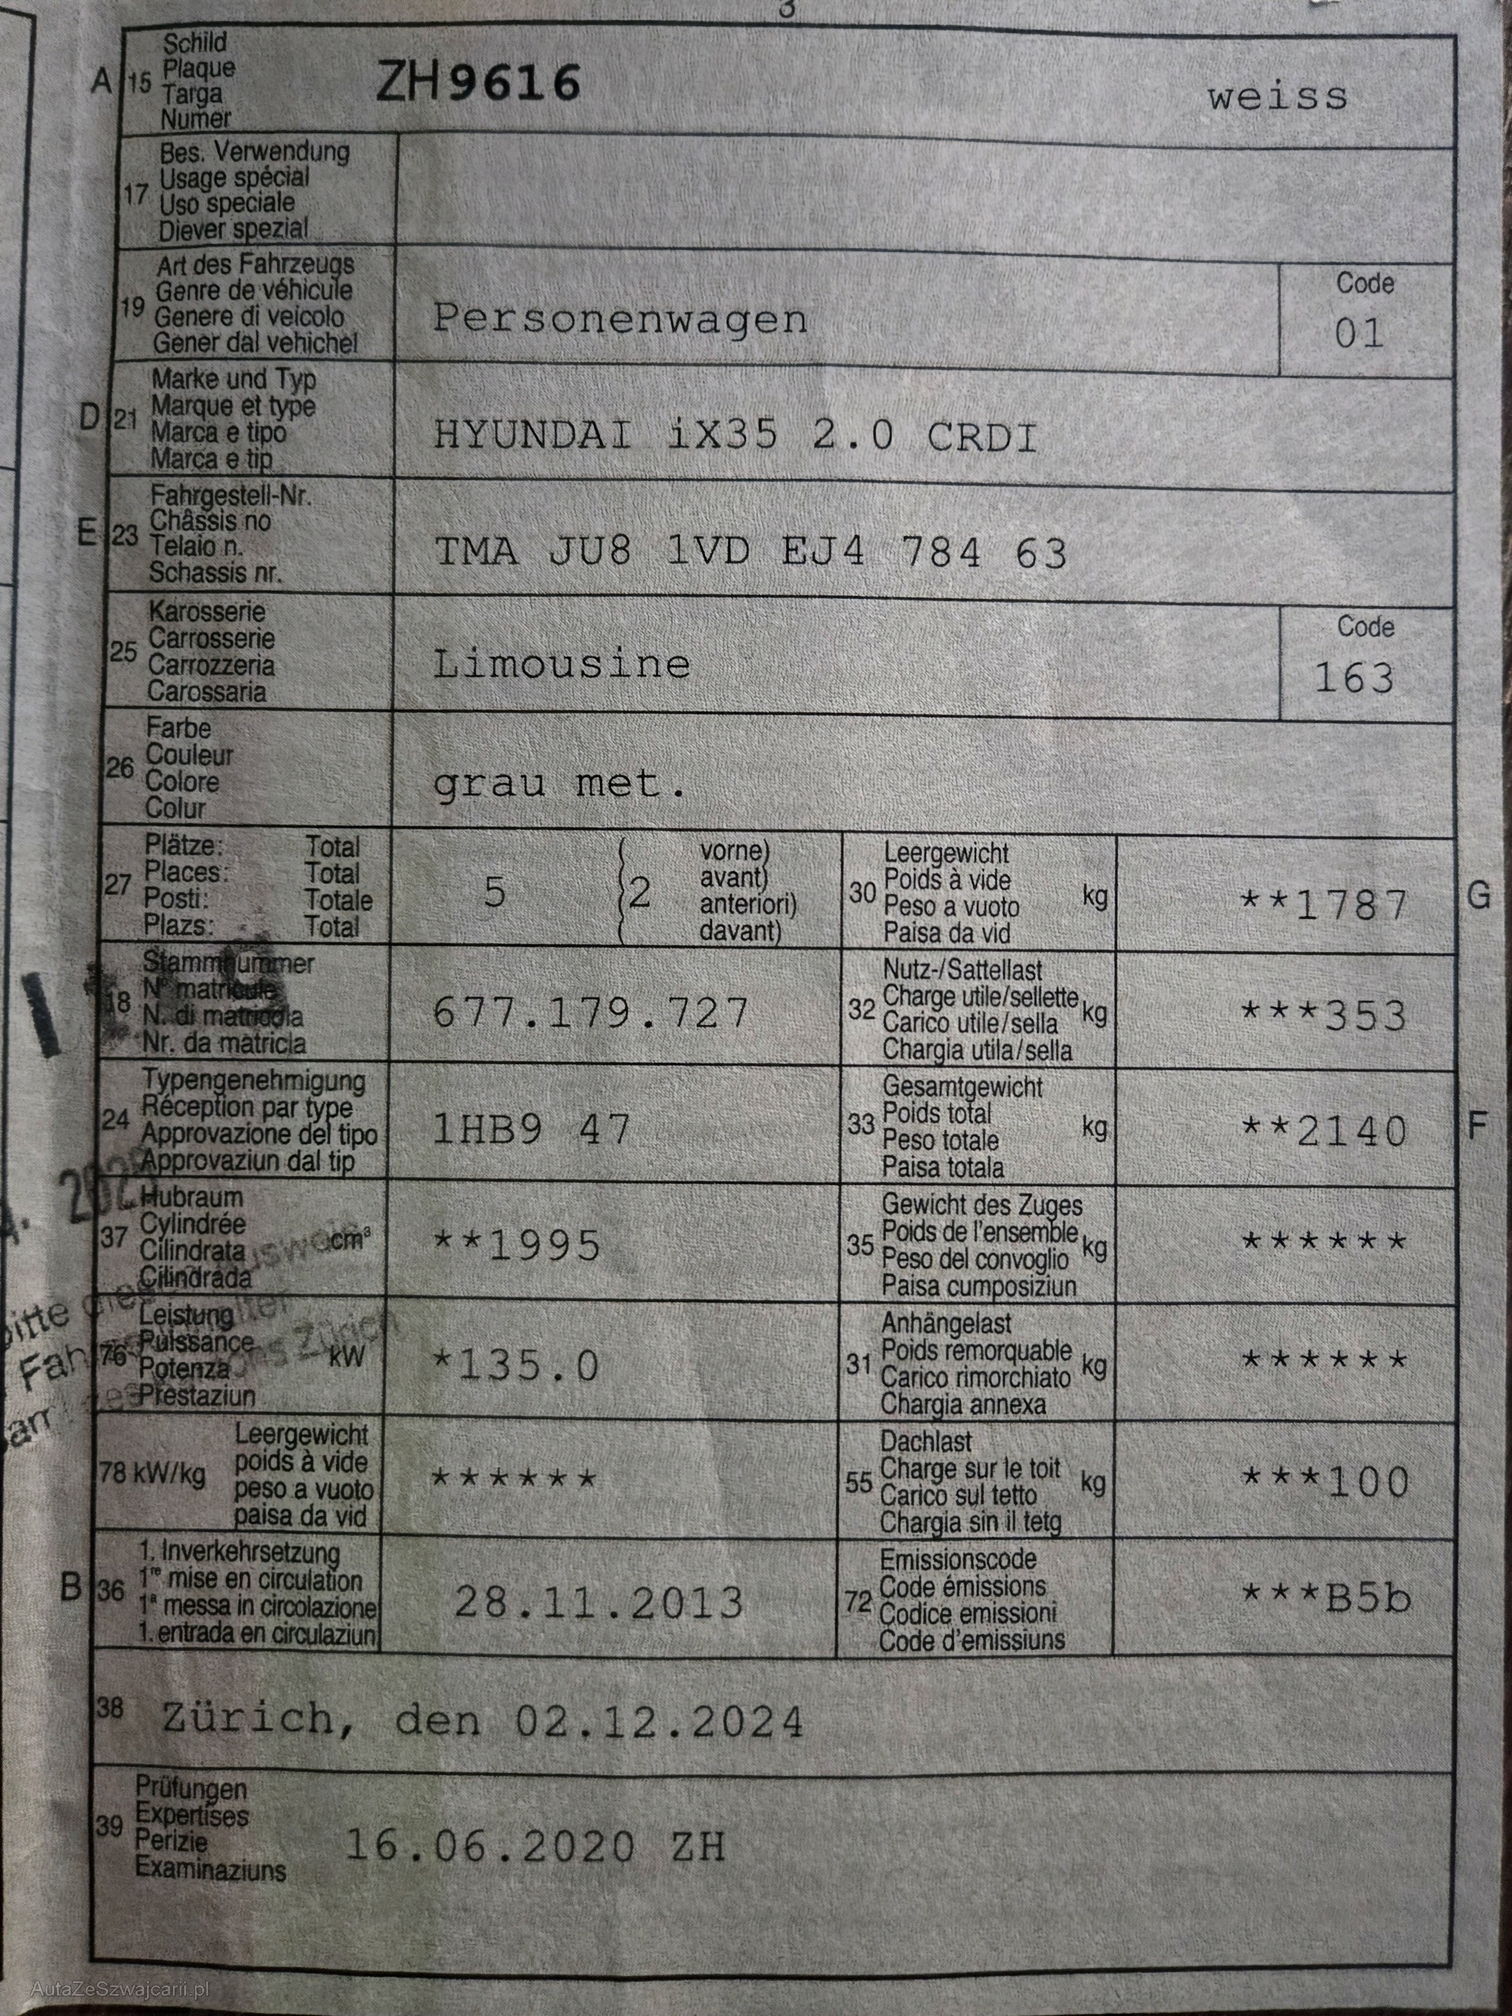 3
A 15 Schild
Plaque
Targa
Numer
ZH9616 weiss
17 Bes. Verwendung
Usage spécial
Uso speciale
Diever spezial
19 Art des Fahrzeugs
Genre de véhicule
Genere di veicolo
Gener dal vehichel
Personenwagen
Code
01
D 21 Marke und Typ
Marque et type
Marca e tipo
Marca e tip
HYUNDAI iX35 2.0 CRDI
E 23 Fahrgestell-Nr.
Châssis no
Telaio n.
Schassis nr.
TMA JU8 1VD EJ4 784 63
25 Karosserie
Carrosserie
Carrozzeria
Carossaria
Limousine
Code
163
26 Farbe
Couleur
Colore
Colur
grau met.
27 Plätze: Total
Places: Total
Posti: Totale
Plazs: Total
5 2
vorne)
avant)
anteriori)
davant)
30 Leergewicht
Poids à vide
Peso a vuoto
Paisa da vid
kg
**1787
G
18 Stammnummer
N° matricule
N. di matricola
Nr. da matricla
677.179.727
32 Nutz-/Sattellast
Charge utile/sellette
Carico utile/sella
Chargia utila/sella
kg
***353
24 Typengenehmigung
Réception par type
Approvazione del tipo
Approvaziun dal tip
1HB9 47
33 Gesamtgewicht
Poids total
Peso totale
Paisa totala
kg
**2140
F
37 Hubraum
Cylindrée
Cilindrata
Cilindrada
cm³
**1995
35 Gewicht des Zuges
Poids de l'ensemble
Peso del convoglio
Paisa cumposiziun
kg
******
76 Leistung
Puissance
Potenza
Prestaziun
kW
*135.0
31 Anhängelast
Poids remorquable
Carico rimorchiato
Chargia annexa
kg
******
78 kW/kg Leergewicht
poids à vide
peso a vuoto
paisa da vid
******
55 Dachlast
Charge sur le toit
Carico sul tetto
Chargia sin il tetg
kg
***100
B 36 1. Inverkehrsetzung
1re mise en circulation
1a messa in circolazione
1. entrada en circulaziun
28.11.2013
72 Emissionscode
Code émissions
Codice emissioni
Code d'emissiuns
***B5b
38 Zürich, den 02.12.2024
39 Prüfungen
Expertises
Perizie
Examinaziuns
16.06.2020 ZH
AutaZeSzwajcarii.pl